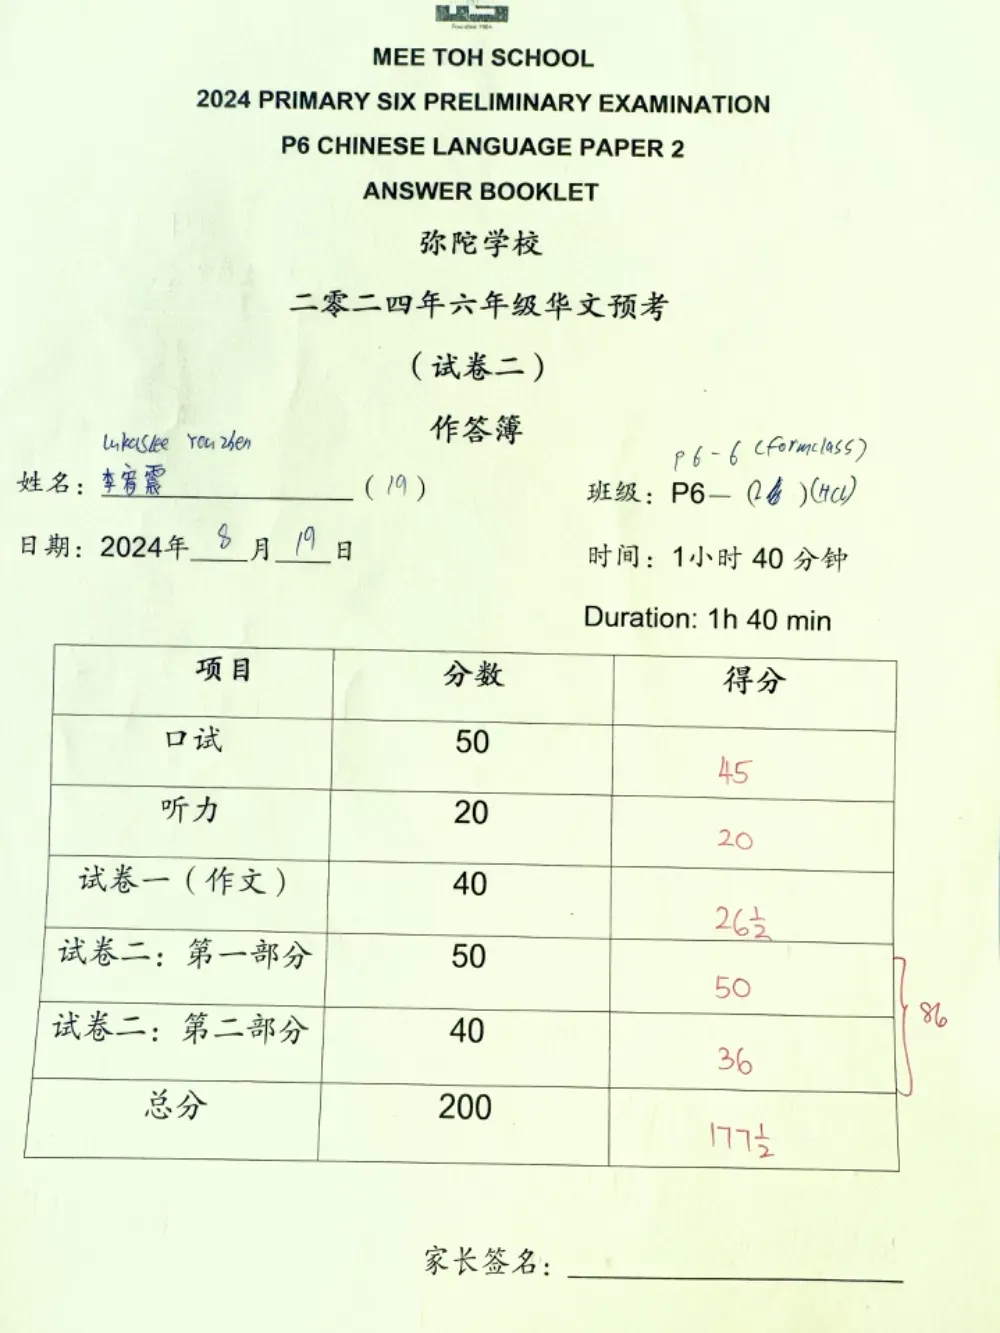 Founded 1954
MEE TOH SCHOOL
2024 PRIMARY SIX PRELIMINARY EXAMINATION
P6 CHINESE LANGUAGE PAPER 2
ANSWER BOOKLET
弥陀学校
二零二四年六年级华文预考
（试卷二）
作答簿
Lukas Lee You Zhen
P6-6 (Form class)
姓名：李宥震 (19)
班级：P6— ( ) (HCL)
日期：2024年 8 月 19 日
时间：1小时 40 分钟
Duration: 1h 40 min
项目 分数 得分
口试 50 45
听力 20 20
试卷一（作文） 40 26½
试卷二：第一部分 50 50
试卷二：第二部分 40 36
86
总分 200 177½
家长签名：